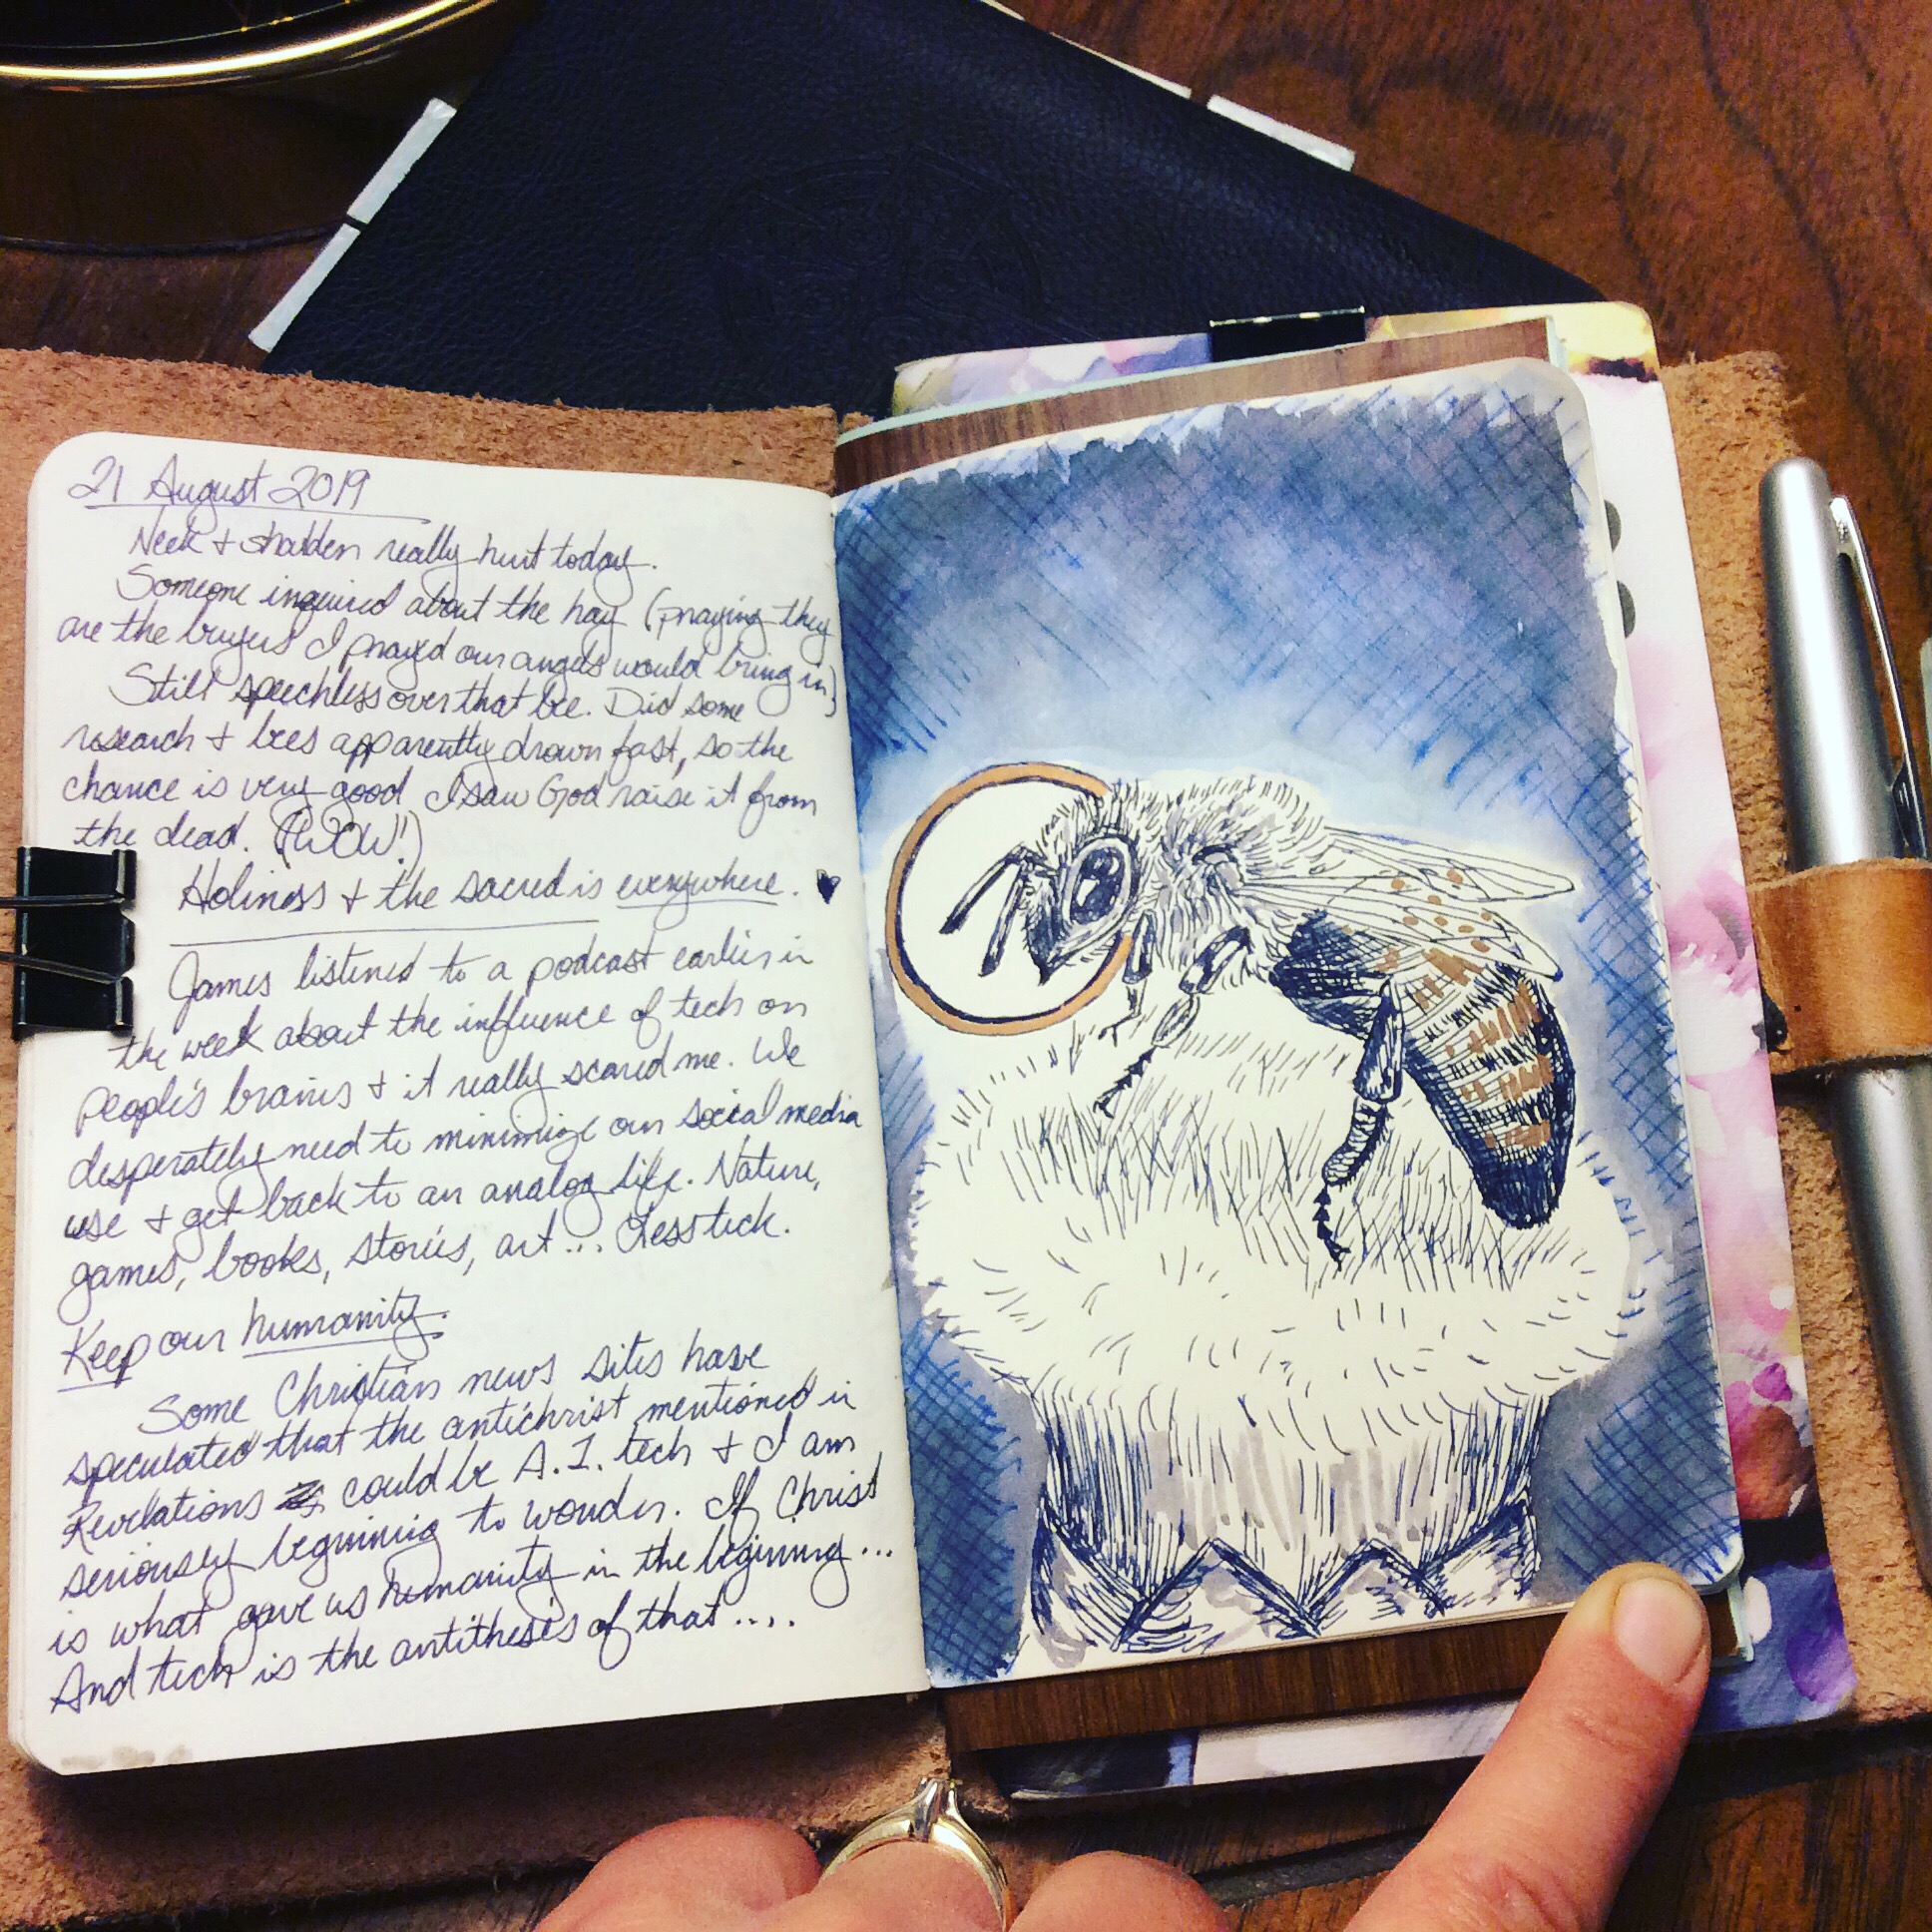 21 August 2019
Neck + shoulder really hurt today.
Someone inquired about the hay (praying they
are the buyers I prayed our angels would bring in)
Still speechless over that bee. Did some
research + bees apparently drown fast, so the
chance is very good I saw God raise it from
the dead. (WOW!)
Holiness + the sacred is everywhere. ♥
James listened to a podcast earlier in
the week about the influence of tech on
people's brains + it really scared me. We
desperately need to minimize our social media
use + get back to an analog life. Nature,
games, books, stories, art... Less tech.
Keep our humanity.
Some Christian news sites have
speculated that the antichrist mentioned in
Revelations could be A.I. tech + I am
seriously beginning to wonder. If Christ
is what gave us humanity in the begining...
And tech is the antithesis of that....